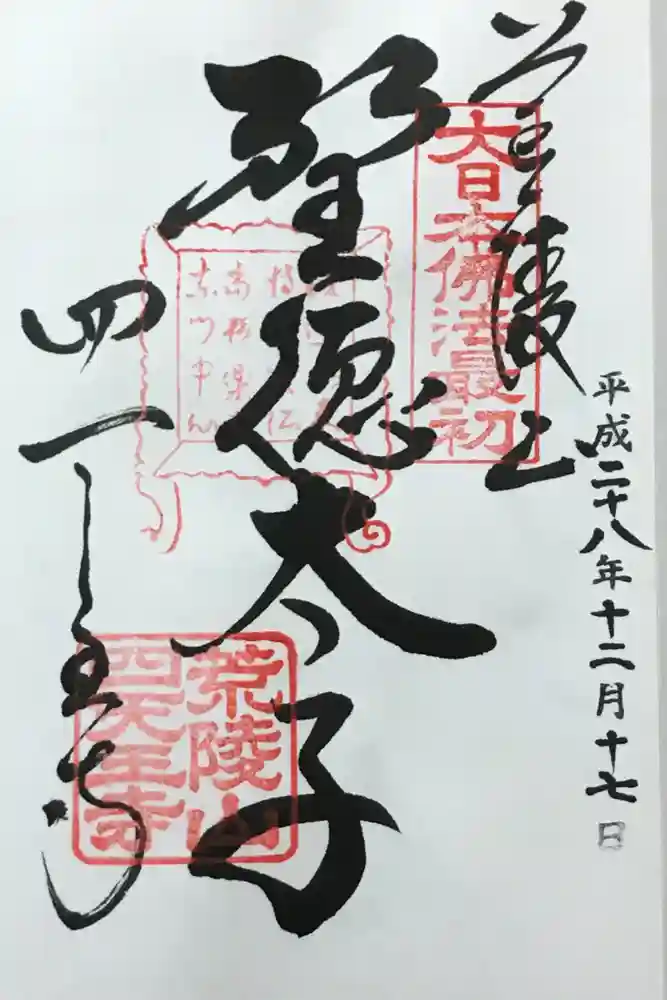 平成二十八年十二月十七日
荒陵山
大日本佛法最初
聖徳太子
四天王寺
荒陵山
四天王寺